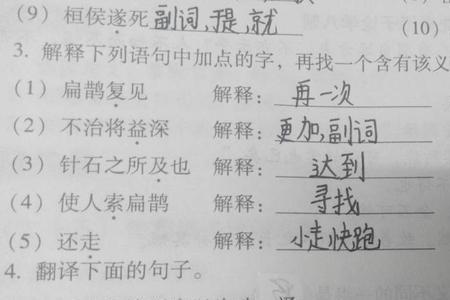 (9) 桓侯遂死 副词,于是,就 (10)
3. 解释下列语句中加点的字，再找一个含有该义
(1) 扁鹊复见 解释：再一次
(2) 不治将益深 解释：更加,副词
(3) 针石之所及也 解释：达到
(4) 使人索扁鹊 解释：寻找
(5) 还走 解释：小走快跑
4. 翻译下面的句子。